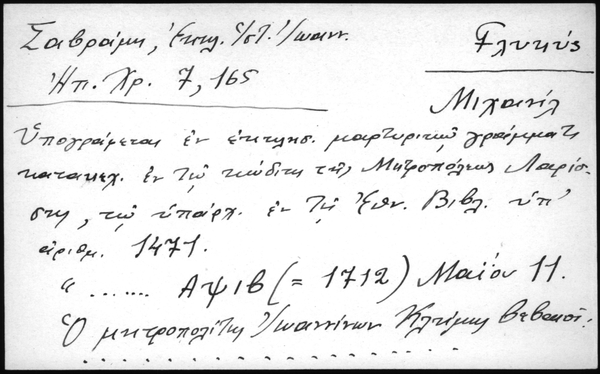 Σαβράμη, Ἐκκλ. ἱστ. Ἰωανν.
Γλυκύς
Ἠπ. Χρ. 7, 165
Μιχαήλ
Ὑπογράφεται ἐν ἐκκλησ. μαρτυρικῷ γράμματι
καταχ. ἐν τῷ κώδικι τῆς Μητροπόλεως Λαρίσ-
σης, τῷ ὑπάρχ. ἐν τῇ Ἐθν. Βιβλ. ὑπ'
ἀριθμ. 1471.
" ...... Αψιβ (= 1712) Μαΐου 11.
Ὁ μητροπολίτης Ἰωαννίνων Κλήμης βεβαιοῖ: